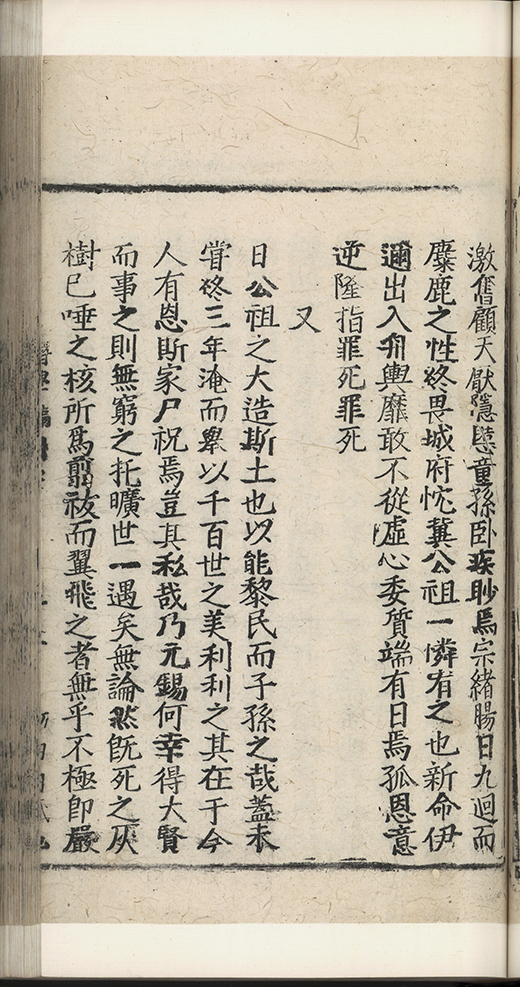 激奮顧天猒隱慝童孫卧疾眇焉宗緒腸日九迴而
麋鹿之性終畏城府忱冀公祖一憐宥之也新命伊
邇出入舟輿靡敢不從虛心委質端有日焉孤恩意
逆隆指罪死罪死
又
日公祖之大造斯土也以能黎民而子孫之哉蓋未
甞終三年淹而舉以千百世之美利利之其在于今
人有恩斯家尸祝焉豈其私哉乃元錫何幸得大賢
而事之則無窮之托曠世一遇矣無論然既死之灰
樹已唾之核所爲翦祓而翼飛之者無乎不極卽嚴